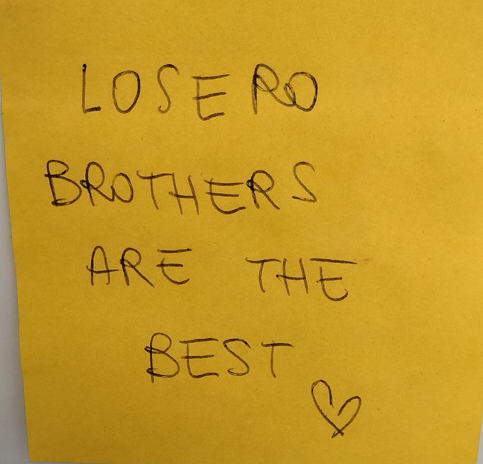 LOSERO
BROTHERS
ARE THE
BEST